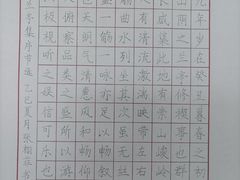 九年岁在癸丑暮春之初
山阴之兰亭修禊事也群
咸集此地有崇山峻岭
有清流激湍映带左右
曲水列坐其次虽无
一觞一咏亦足以畅叙
也天朗气清惠风和畅仰
俯察品类之盛所以游
极视听之娱信可乐也
兰亭集序节选 乙巳夏月张相书